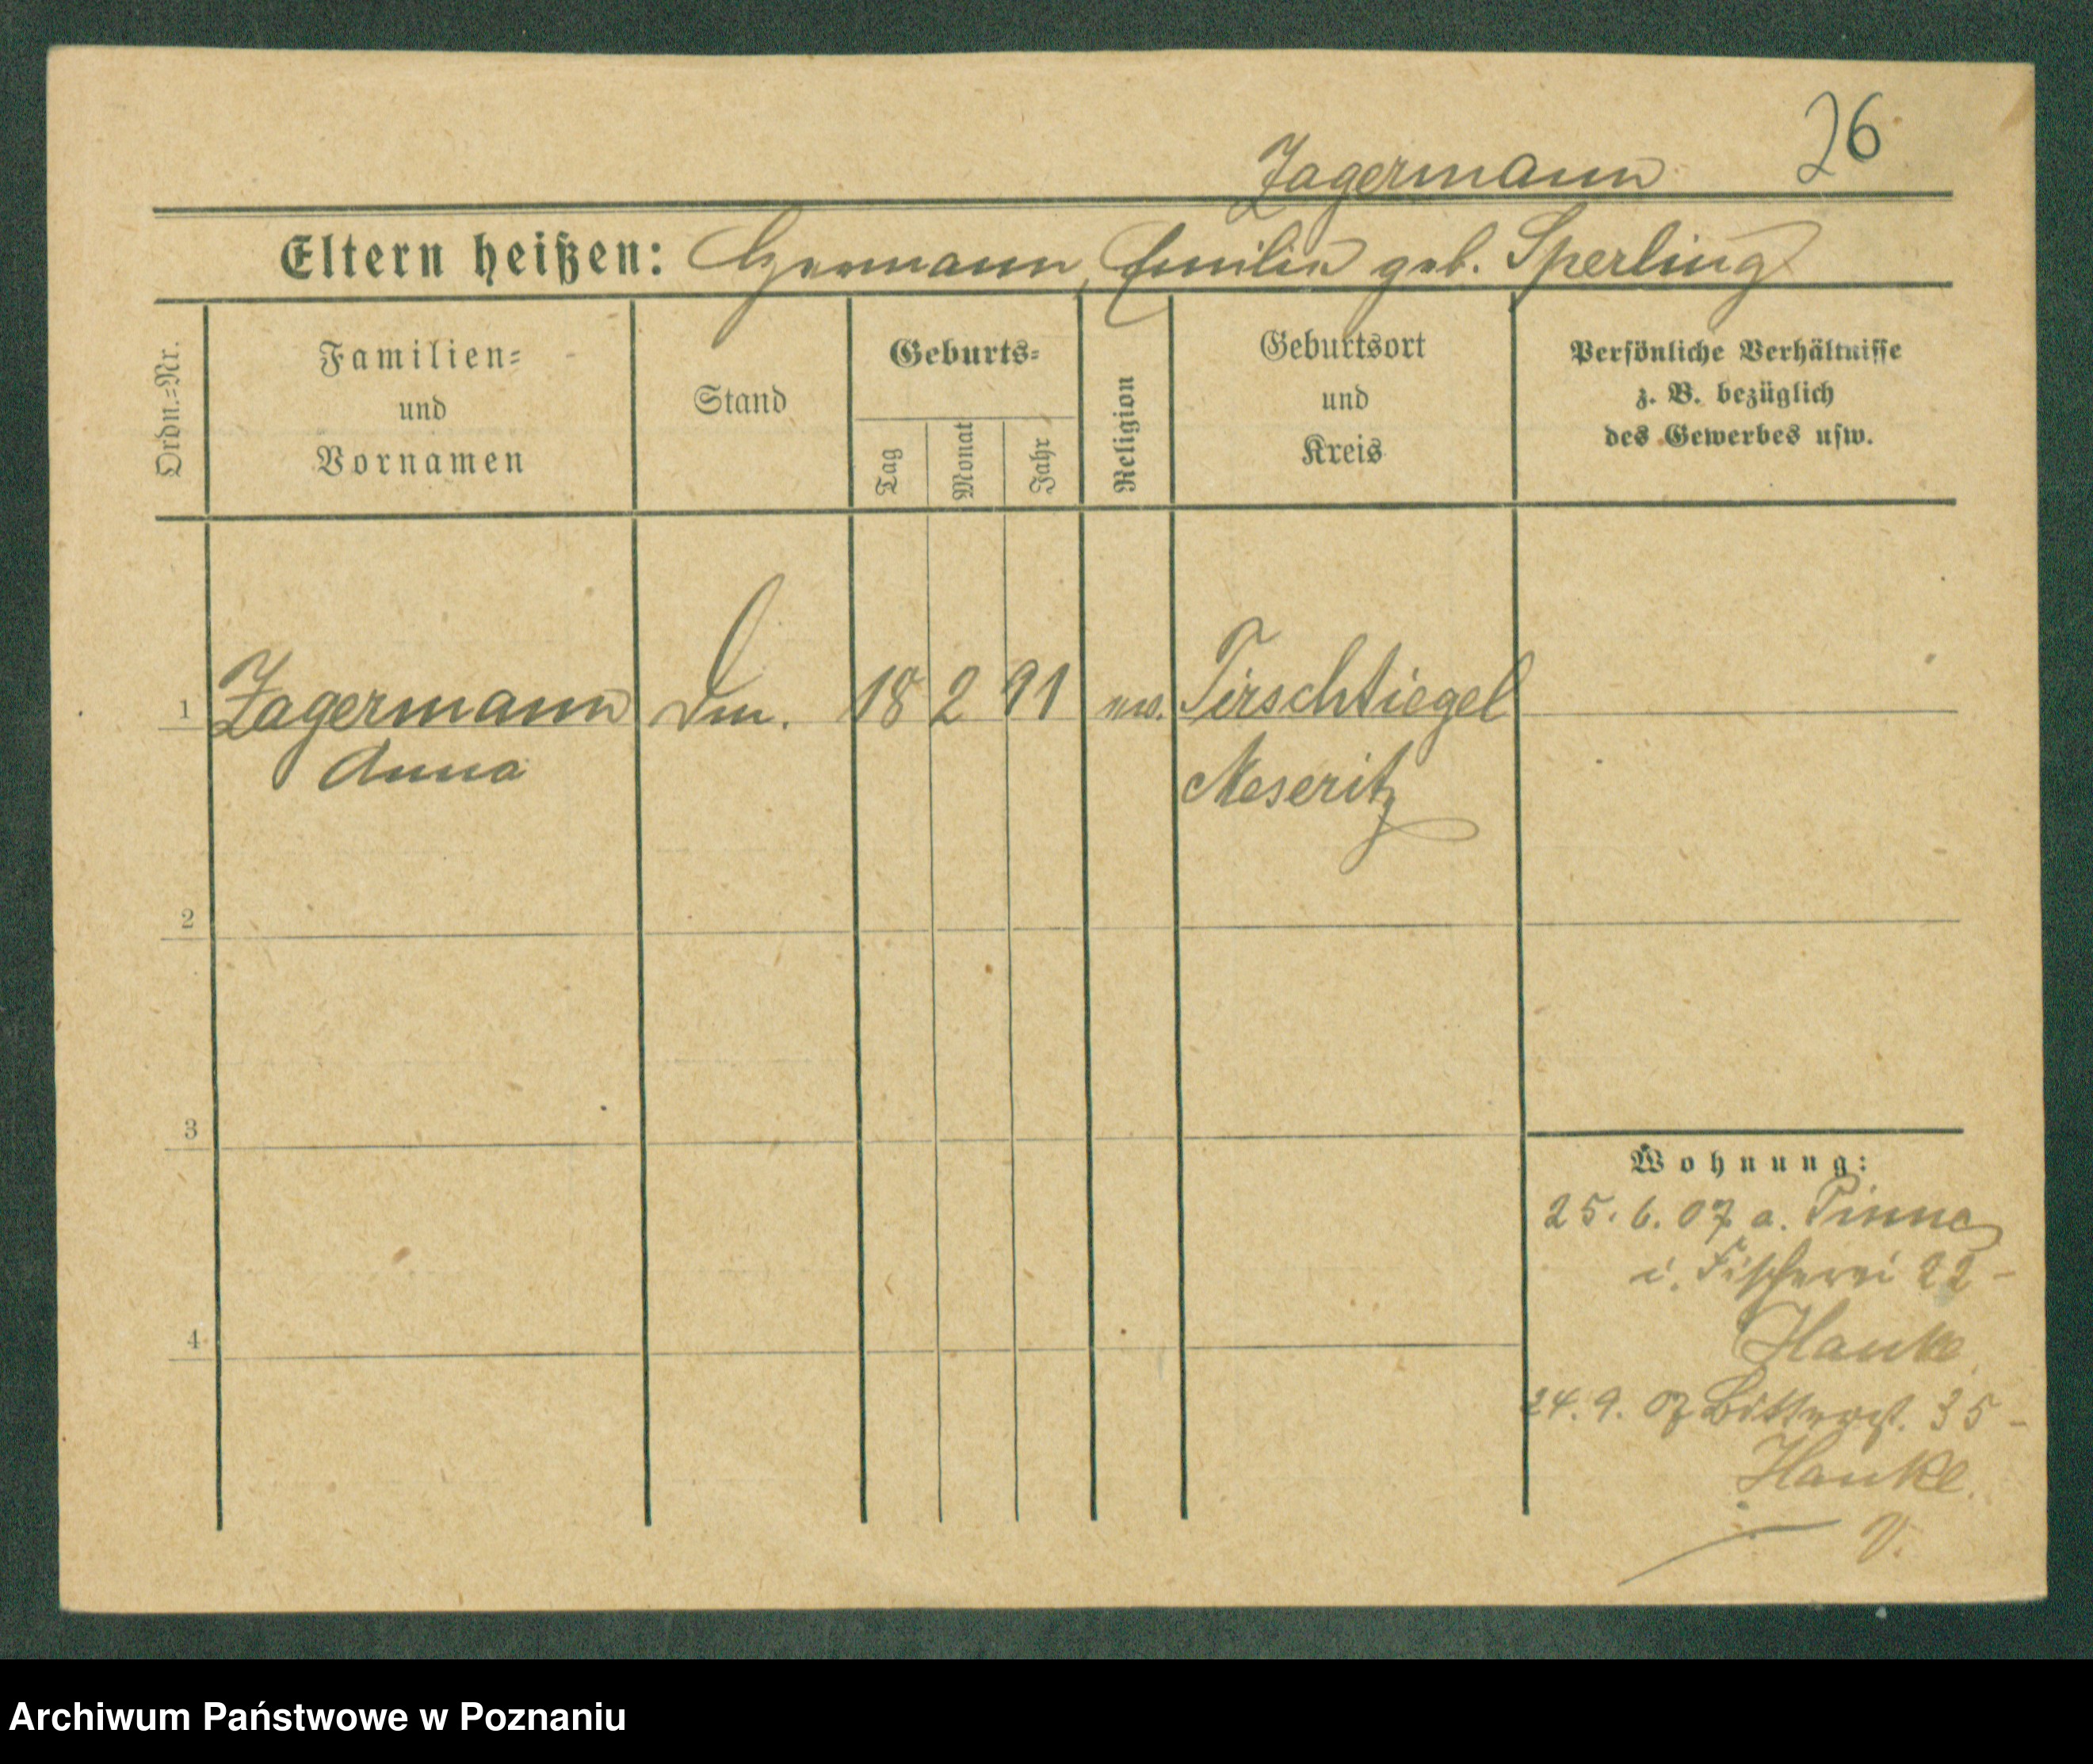 26
Zagermann
Eltern heißen: Hermann, Emilie geb. Sperling
Ordn.=Nr.
Familien=
und
Vornamen
Stand
Geburts=
Tag
Monat
Jahr
Religion
Geburtsort
und
Kreis
Persönliche Verhältnisse
z. B. bezüglich
des Gewerbes usw.
1 Zagermann 18 2 91 Tirschtiegel
Anna Meseritz
2
3
4
Wohnung:
25. 6. 07 a. Pinne
i. Fischerei 22 -
Hanke
24. 9. 07 35 -
Hanke.
V.
Archiwum Państwowe w Poznaniu